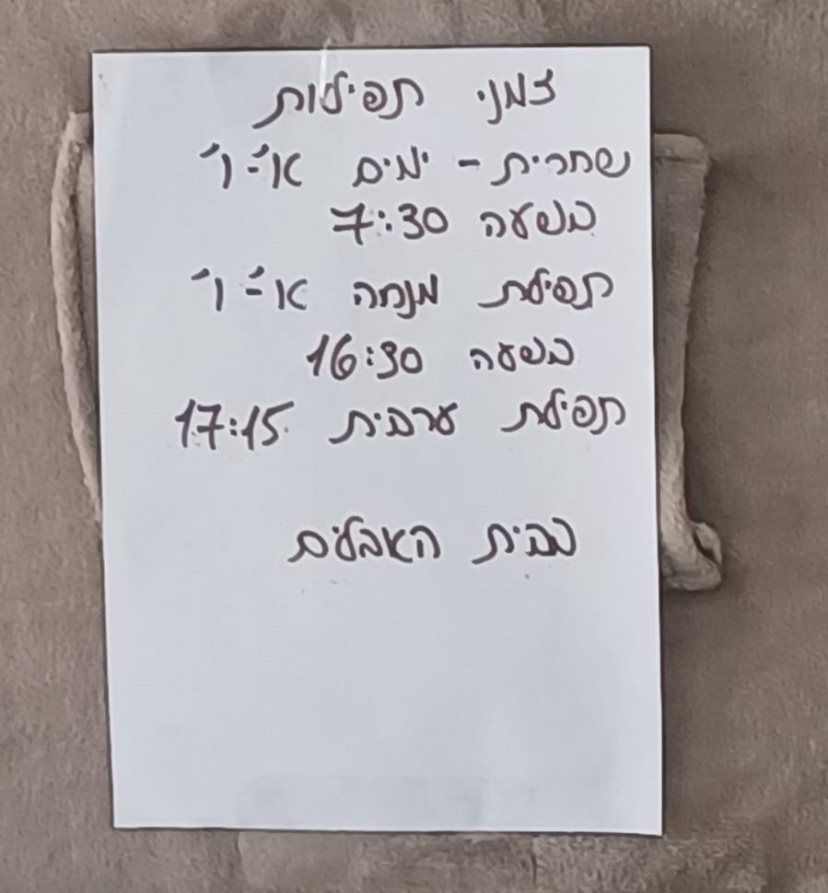 זמני תפילות
שחרית - ימים א'-ו'
בשעה 7:30
תפילת מנחה א'-ו'
בשעה 16:30
תפילת ערבית 17:15
בבית האבלים